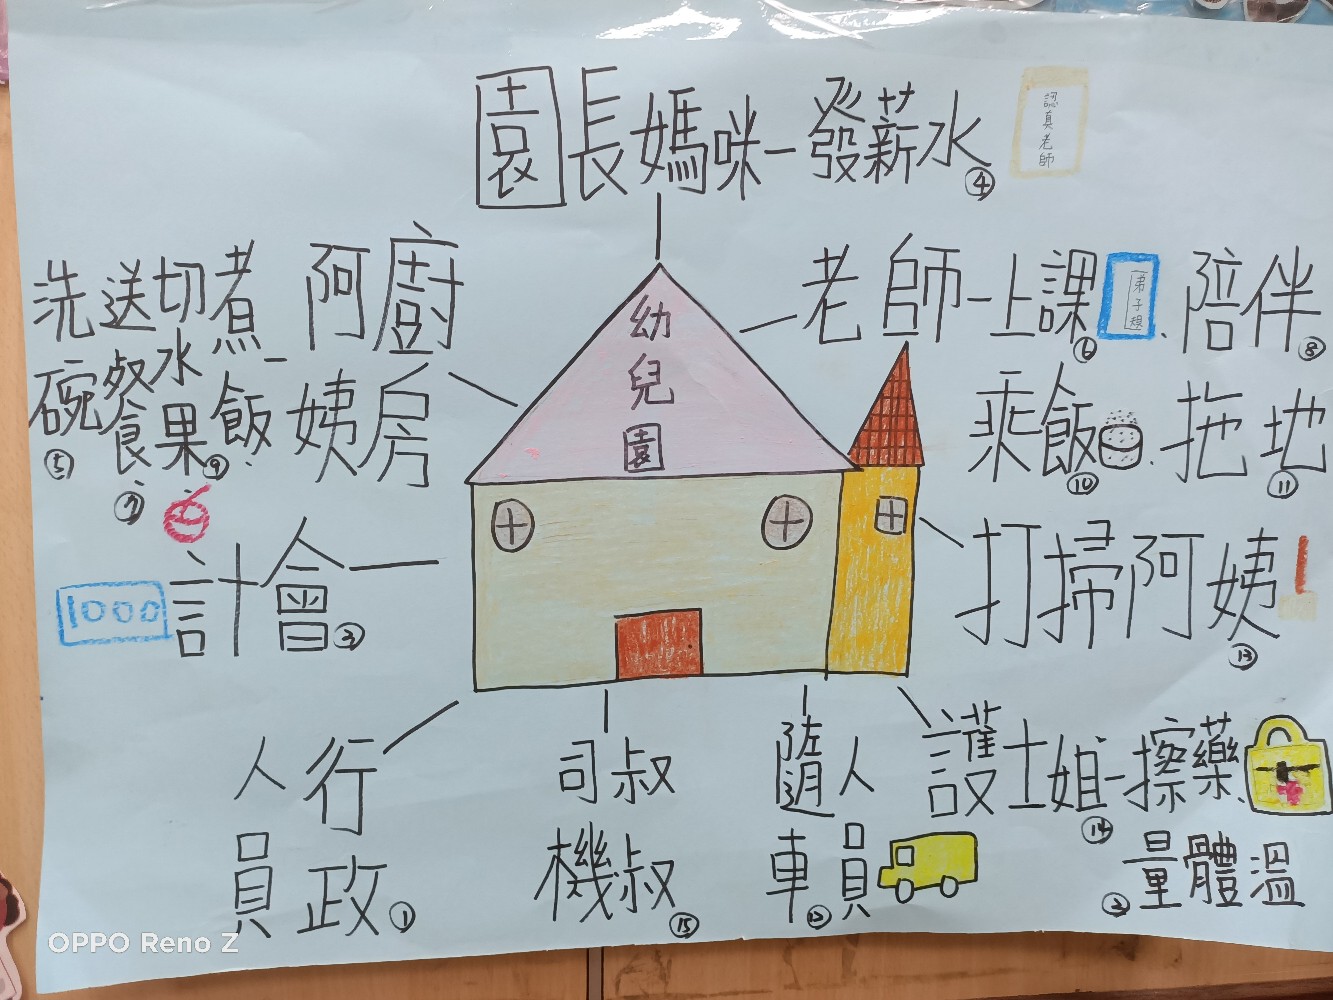 園長媽咪-發薪水④
認真老師
幼兒園
老師-上課⑥
弟子規
、陪伴⑧
乘飯⑩、拖地⑪
打掃阿姨⑬
護士姐-擦藥、⑭
量體溫②
隨車人員⑫
司機叔叔⑮
行政人員①
會計③
1000
廚房阿姨-煮飯、切水果⑨送餐⑦洗碗⑤
OPPO Reno Z